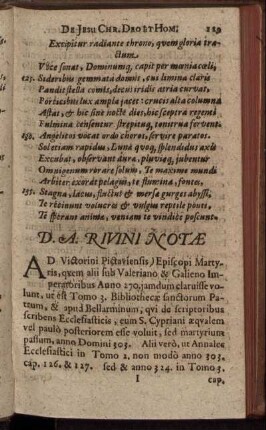 DE JESU CHR. DEO ET HOM. 129
Excipitur radiante throno, quem gloria tra-
ctum
Voce sonat, Dominumq; capit per mœnia cœli,
125. Sideribus gemmata domus, cui limina claris
Pandit stella comis, decui iridis atria curvat,
Porticibus lux ampla jacet: crucis alta columna
Astat, & hic sine nocte dies, hic sceptra regenti
Fulmina censentur strepituq; tonitrua fervent.
130. Angelicos vocat ordo choros, servire paratos.
Sol etiam rapidum, Luna quoq; splendidus axis
Excubat, observant aura, pluviæq; jubentur
Omnigenum rorare solum, Te maxime mundi
Arbiter exorat pelagus, te flumina, fontes,
135. Stagna, lacus, fluctus & mersa gurges abysso,
Te retinent volucres & vulgus reptile ponti,
Te sperant animæ, veniam te vindice poscunt.
D. A. RIVINI NOTÆ
AD Victorini Pictaviensis Episcopi Marty-
ris, quem alii sub Valeriano & Galieno Im-
peratoribus Anno 270. jamdum claruisse vo-
lunt, ut est Tomo 3. Bibliothecæ sanctorum Pa-
trum, & apud Bellarminum, qui de scriptoribus
scribens Ecclesiasticis, eum S. Cypriani æqvalem
vel paulò posteriorem esse voluit, sed martyrium
passum, anno Domini 303. Alii verò, ut Annales
Ecclesiastici in Tomo 2. non modò anno 303.
cap. 126. & 127. sed & anno 324. in Tomo 3.
I cap.